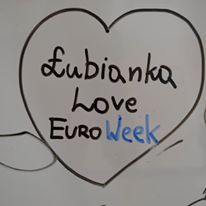 Łubianka
Love
EURO Week